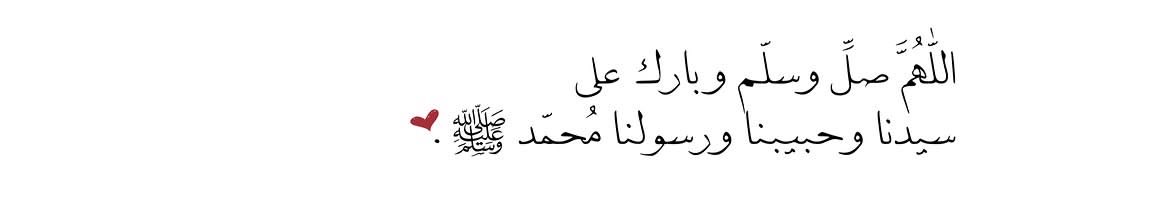 اللّٰهُمَّ صلِّ وسلّم وبارك على
سيدنا وحبيبنا ورسولنا مُحمّد ﷺ .